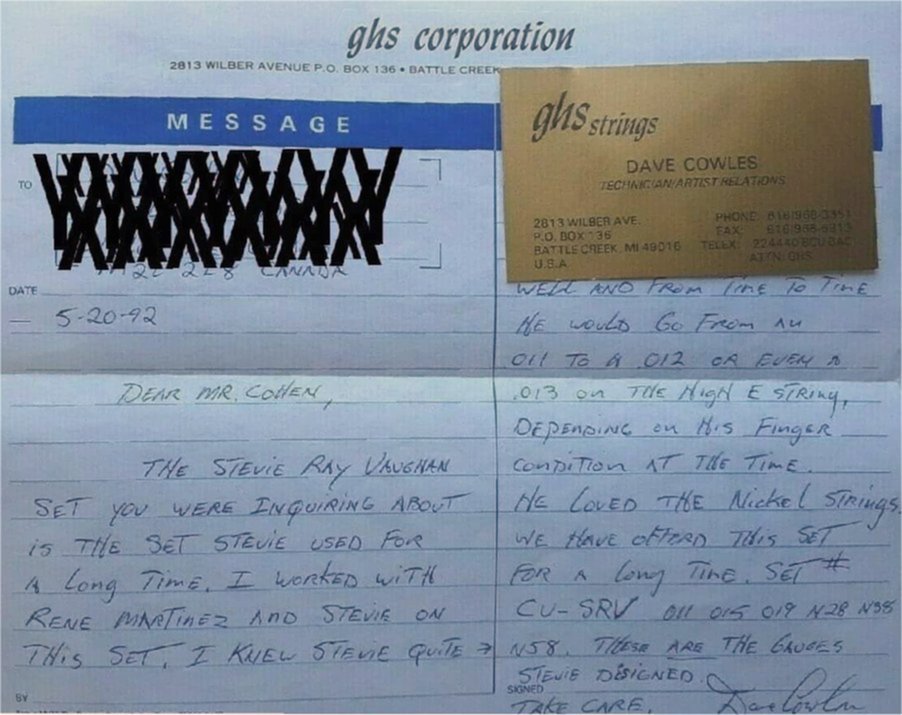 ghs corporation
2813 WILBER AVENUE P.O. BOX 136 • BATTLE CREEK
MESSAGE
ghs strings
DAVE COWLES
TECHNICIAN/ARTIST RELATIONS
2813 WILBER AVE.
P.O. BOX 136
BATTLE CREEK, MI 49016
U.S.A.
PHONE: 616/968-3351
FAX: 616/968-6913
TELEX: 224440 BCU BAC
ATTN: GHS
TO
CANADA
DATE
— 5-20-92
DEAR MR. COHEN,
THE STEVIE RAY VAUGHAN
SET YOU WERE INQUIRING ABOUT
IS THE SET STEVIE USED FOR
A LONG TIME. I WORKED WITH
RENE MARTINEZ AND STEVIE ON
THIS SET. I KNEW STEVIE QUITE →
BY
WELL AND FROM TIME TO TIME
HE WOULD GO FROM AN
011 TO A .012 OR EVEN A
.013 ON THE HIGH E STRING,
DEPENDING ON HIS FINGER
CONDITION AT THE TIME.
HE LOVED THE NICKEL STRINGS.
WE HAVE OFFERD THIS SET
FOR A LONG TIME. SET #
CU-SRV 011 015 019 N28 N38
N58. THESE ARE THE GAUGES
STEVIE DESIGNED.
SIGNED
TAKE CARE. Dave Cowles